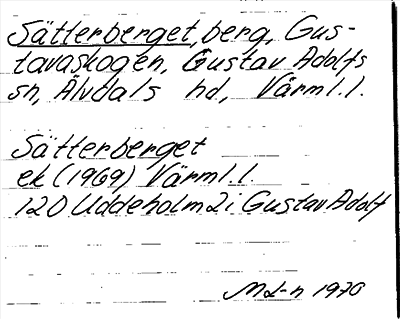 Sätterberget, berg, Gus-
tavaskogen, Gustav Adolfs
sn, Älvdals hd, Värml. l.
Sätterberget
ek (1969) Värml. l.
120 Uddeholm 2 i Gustav Adolf
ML-n 1970